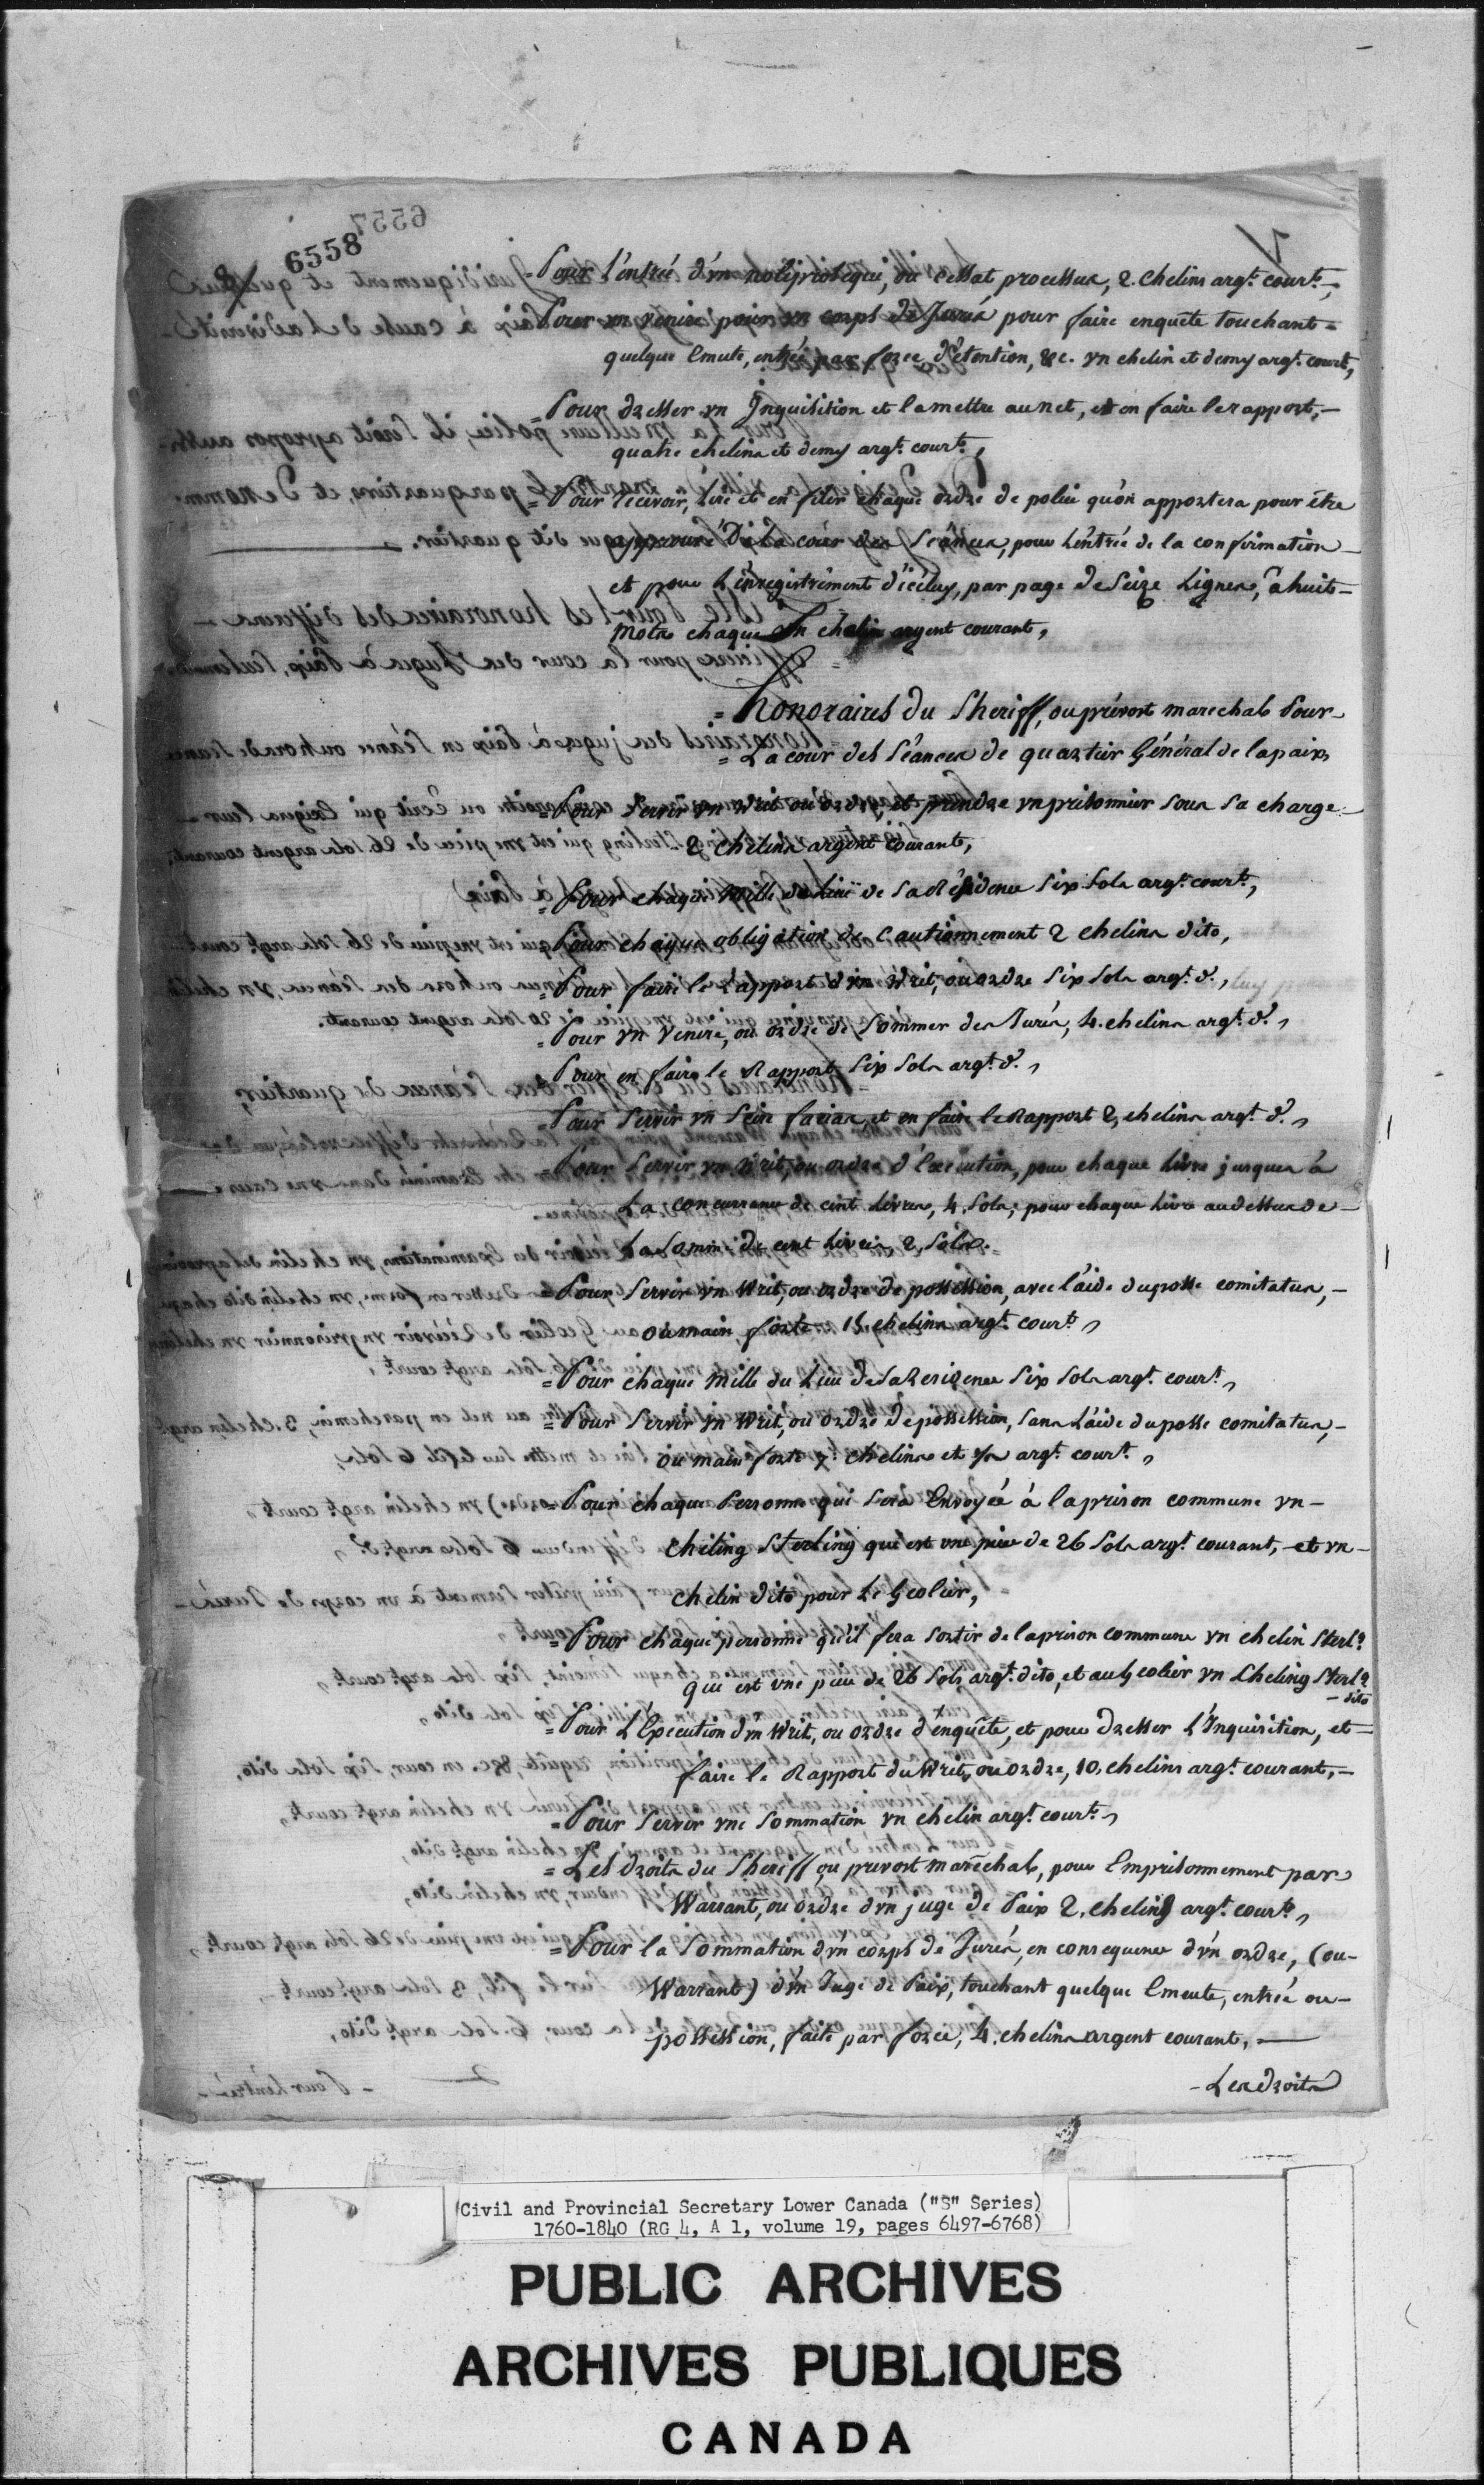 6558
= Pour l'entrée d'vn noliprosequi, ou cessat processus, 2. chelins argt. court.,
= Pour vn venire pour vn corps de Jurés pour faire enquête touchant =
quelque Emute, entrée par force détention, &c. vn chelin et demy argt. court,
= Pour dresser vn Inquisition et la mettre au net, et en faire le rapport, —
quatre chelins et demy argt. court.,
= Pour recevoir, lire et en filer chaque ordre de police qu'on apportera pour être
approuvé De la cour des Séances, pour L'éntrée de la confirmation —
et pour L'énregistrément d'icéluy, par page de Seize Lignes, à huit —
mots chaque Un chelin argent courant,
= honoraires du Sheriff, ou prévost marechal Pour —
= La cour des Séances de quartier Général de la paix,
= Pour Servir vn Writ ou ordre, et prendre vn prisonnier sous sa charge —
2 chelins argent courant,
= Pour chaque Mille du lieu de sa Résidence Six Sols argt. court.,
= Pour chaque obligation de Cautionnement 2 chelins dito,
= Pour faire le rapport d'vn Writ, ou ordre Six Sols argt. d°.,
= Pour vn Venire, ou ordre de Sommer des Jurés, 4. chelins argt. d°.,
Pour en faire le Rapport Six Sols argt. d°.,
= Pour Servir vn Scire facias, et en faire le Rapport 2, chelins argt. d°.,
= Pour Servir vn Writ, ou ordre d'Execution, pour chaque Livre jusques à
La concurrance de cent Livres, 4, Sols; pour chaque Livre au dessus de —
La Somme de cent Livres 2, Sols.
= Pour Servir vn Writ, ou ordre de possession, avec l'aide du posse comitatus, —
ou main forte 15 chelins argt. court.,
= Pour chaque Mille du Lieu de Sa Residence Six Sols argt. court.,
= Pour Servir vn Writ, ou ordre de possession, Sans L'aide du posse comitatus, —
ou main forte 7. chelins et ½ argt. court.,
= Pour chaque Personne qui Sera Envoyée à la prison commune vn —
Cheling Sterling qui est vne piece de 26 Sols argt. courant, et vn —
chelin dito pour Le Geolier,
= Pour chaque personne qu'il fera Sortir de la prison commune vn chelin Sterlg.
qui est vne piece de 26 Sols argt. dito, et au Geolier vn Cheling Sterlg.
— dito
= Pour L'Execution d'vn Writ, ou ordre d'enquête, et pour dresser L'Inquisition, et —
faire le Rapport du Writ, ou ordre, 10, chelins argt. courant, —
= Pour Servir vne Sommation vn chelin argt. court.,
= Les droits du Sheriff ou prevost maréchal, pour Emprisonnement par
Warrant, ou ordre d'vn juge de Paix 2. cheling argt. court.,
= Pour la Sommation d'vn corps de Jurés, en consequence d'vn ordre, (ou —
Warrant) d'vn Juge de Paix, touchant quelque Emeute, entrée ou —
possession, faite par force, 4. chelins argent courant, —
— Les droits
Civil and Provincial Secretary Lower Canada ("S" Series)
1760-1840 (RG 4, A 1, volume 19, pages 6497-6768)
PUBLIC ARCHIVES
ARCHIVES PUBLIQUES
CANADA